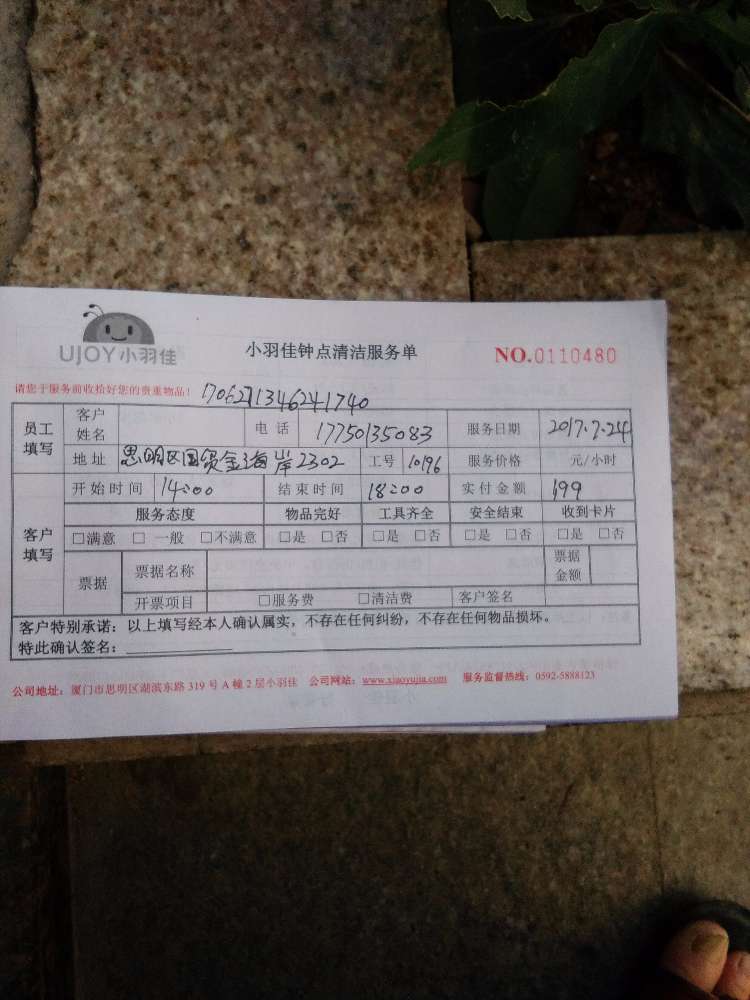 UJOY小羽佳 小羽佳钟点清洁服务单 NO.0110480
请您于服务前收拾好您的贵重物品! 1706271346241740
员工填写 客户姓名 电话 17750135083 服务日期 2017.7.24
地址 思明区国贸金海岸2302 工号 10196 服务价格 元/小时
客户填写 开始时间 14:00 结束时间 18:00 实付金额 199
服务态度 物品完好 工具齐全 安全结束 收到卡片
□满意 □一般 □不满意 □是 □否 □是 □否 □是 □否 □是 □否
票据 票据名称 票据金额
开票项目 □服务费 □清洁费 客户签名
客户特别承诺：以上填写经本人确认属实，不存在任何纠纷，不存在任何物品损坏。
特此确认签名：
公司地址：厦门市思明区湖滨东路 319 号 A 幢 2 层小羽佳 公司网站：www.xiaoyujia.com 服务监督热线：0592-5888123